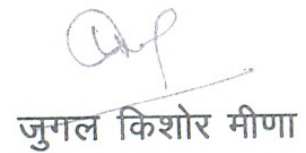 जुगल किशोर मीणा